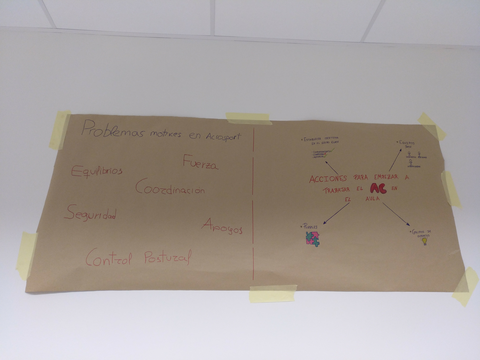 Problemas motrices en Acrosport
Fuerza
Equilibrios
Coordinación
Seguridad
Apoyos
Control Postural
ACCIONES PARA EMPEZAR A
TRABAJAR EL AC EN
EL AULA